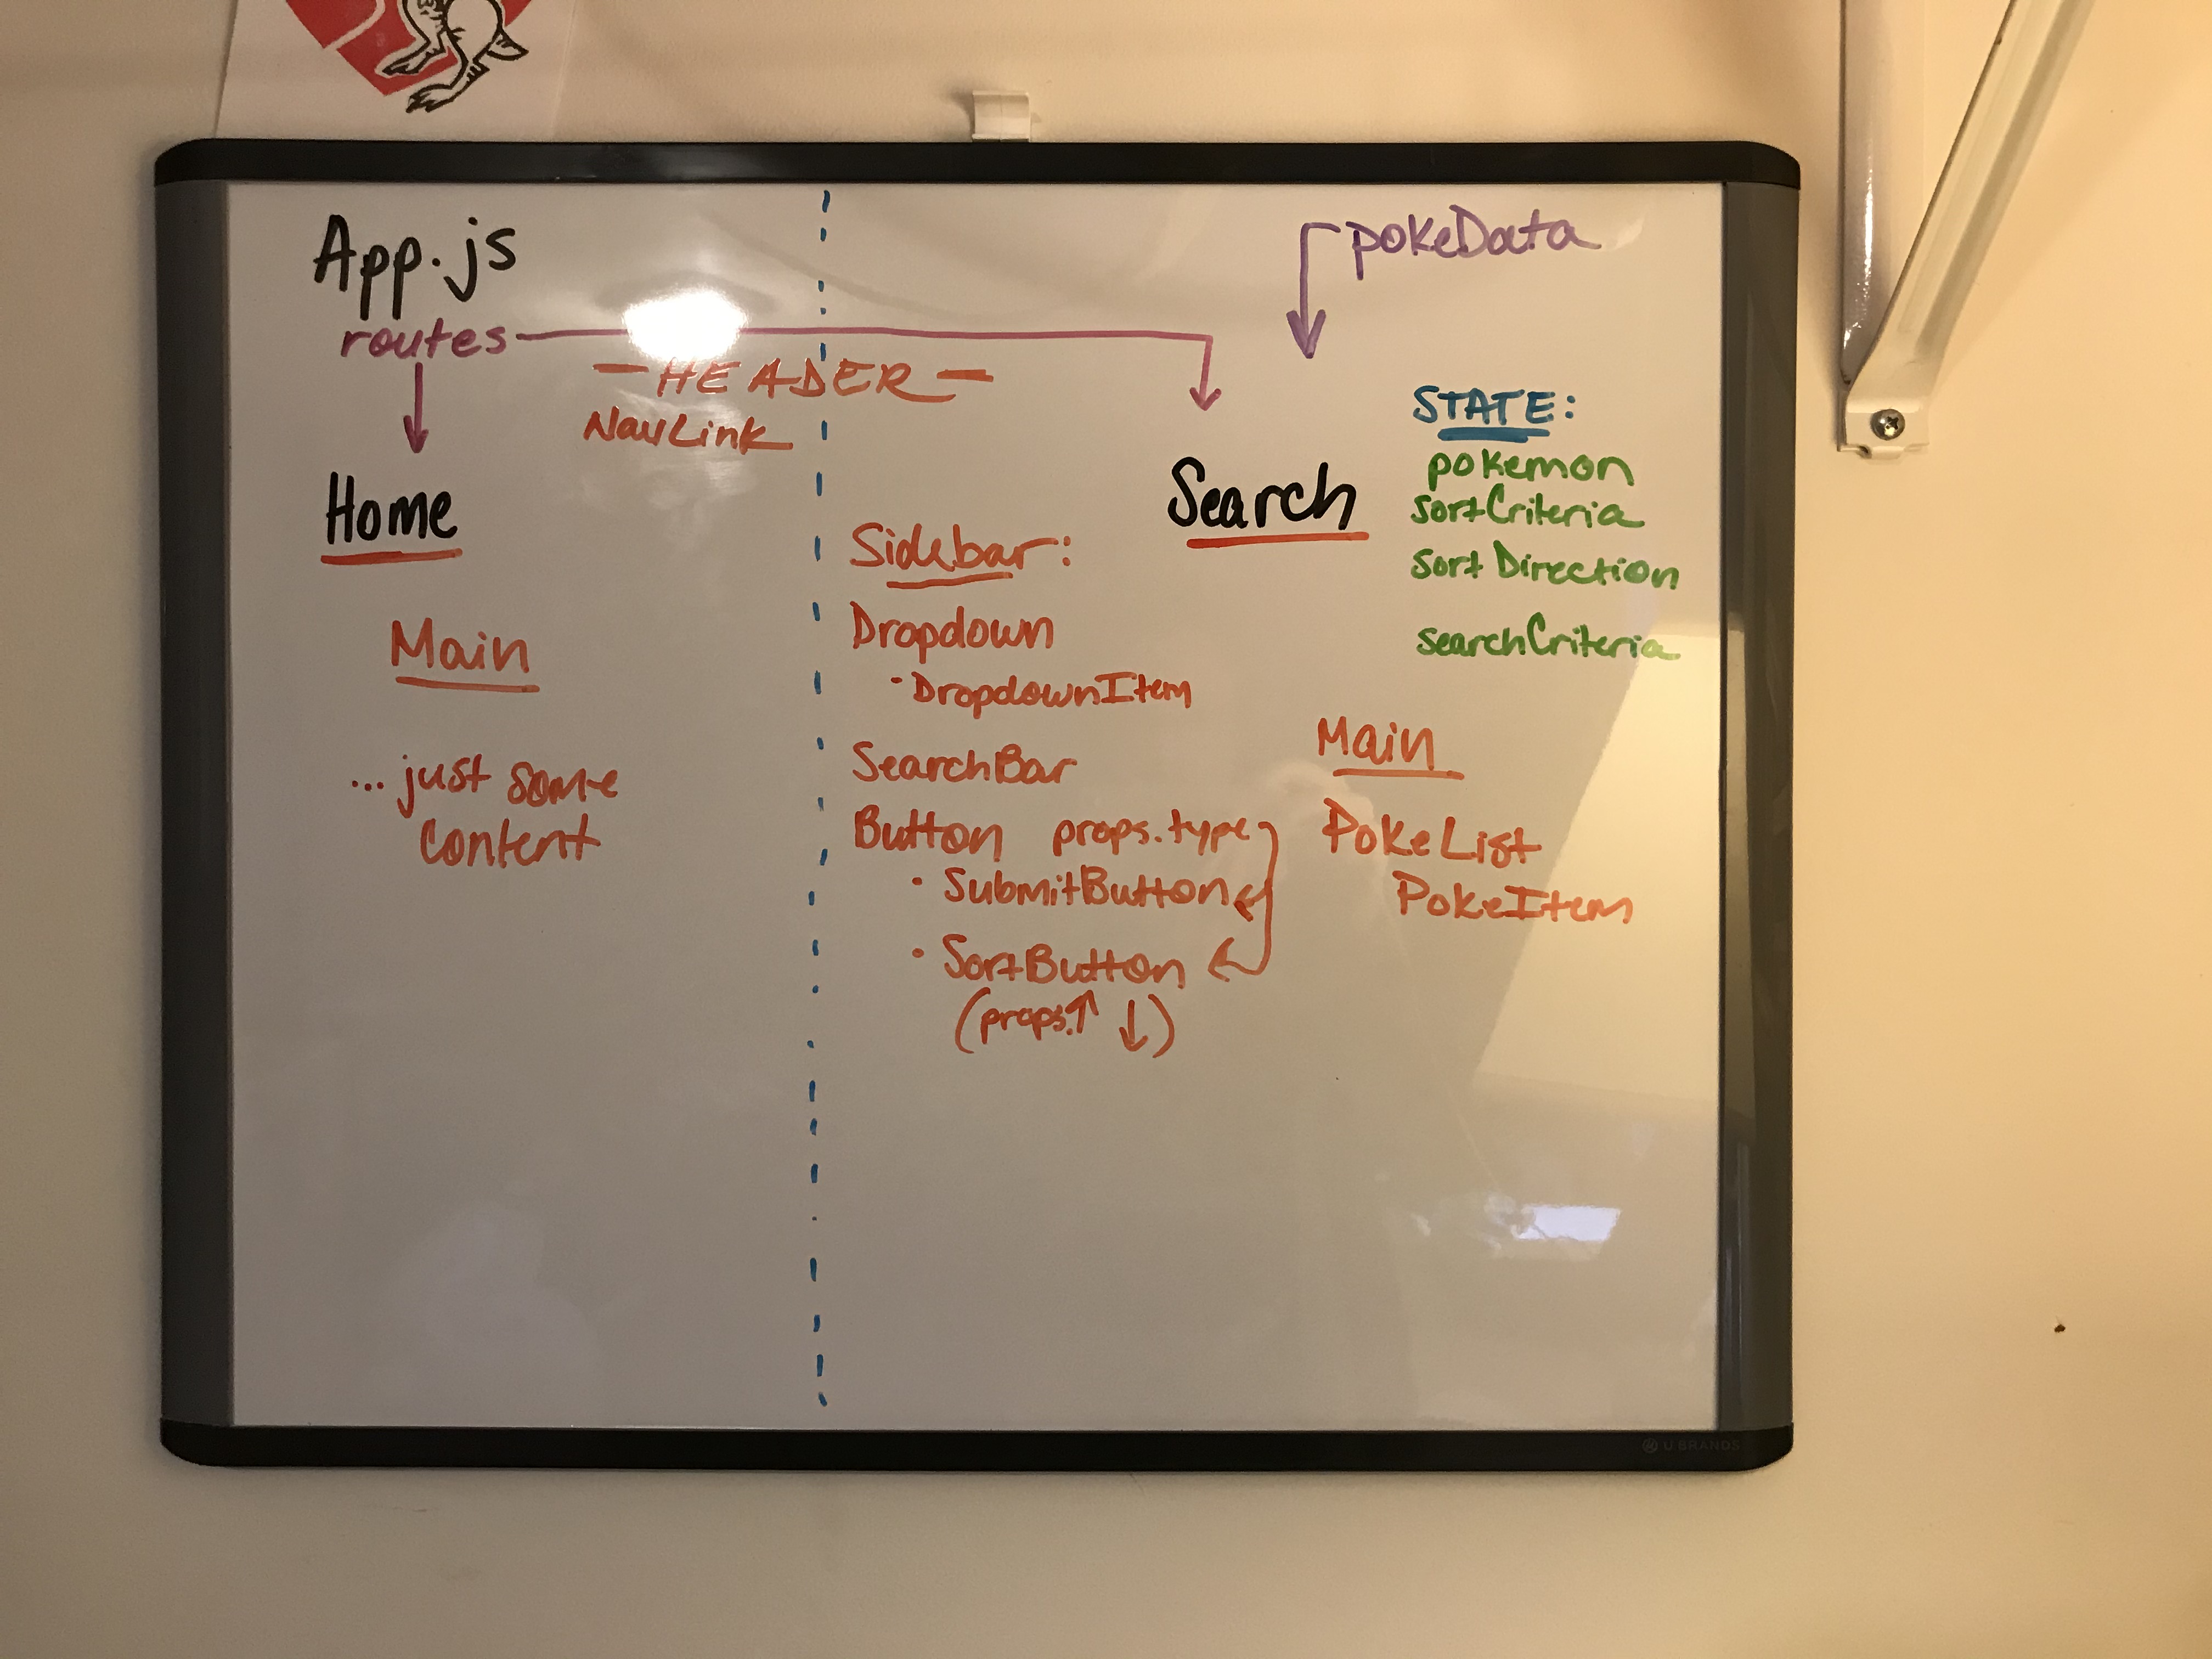 App.js
routes
pokeData
— HEADER —
NavLink
Home
Main
... just some
content
Search
STATE:
pokemon
sortCriteria
sortDirection
searchCriteria
Sidebar:
Dropdown
· DropdownItem
SearchBar
Button props.type
· SubmitButton
· SortButton
(props.↑ ↓)
Main
PokeList
PokeItem
U BRANDS